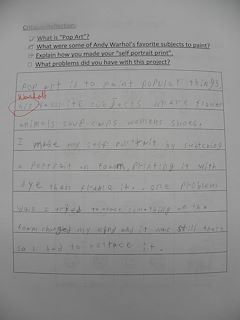 Critique/Reflection:
What is "Pop Art"?
What were some of Andy Warhol's favorite subjects to paint?
Explain how you made your "self portrait print".
What problems did you have with this project?
Pop art is to paint popular things
Warhols
his favorite subjects were flower
animals soup cans womens shoes.
I made my self portrait by sketching
a portrait on foam, printing it with
than it. one problem
was I tried to trace something on the
foam changed my mind and it was still there
so I had to retrace it.